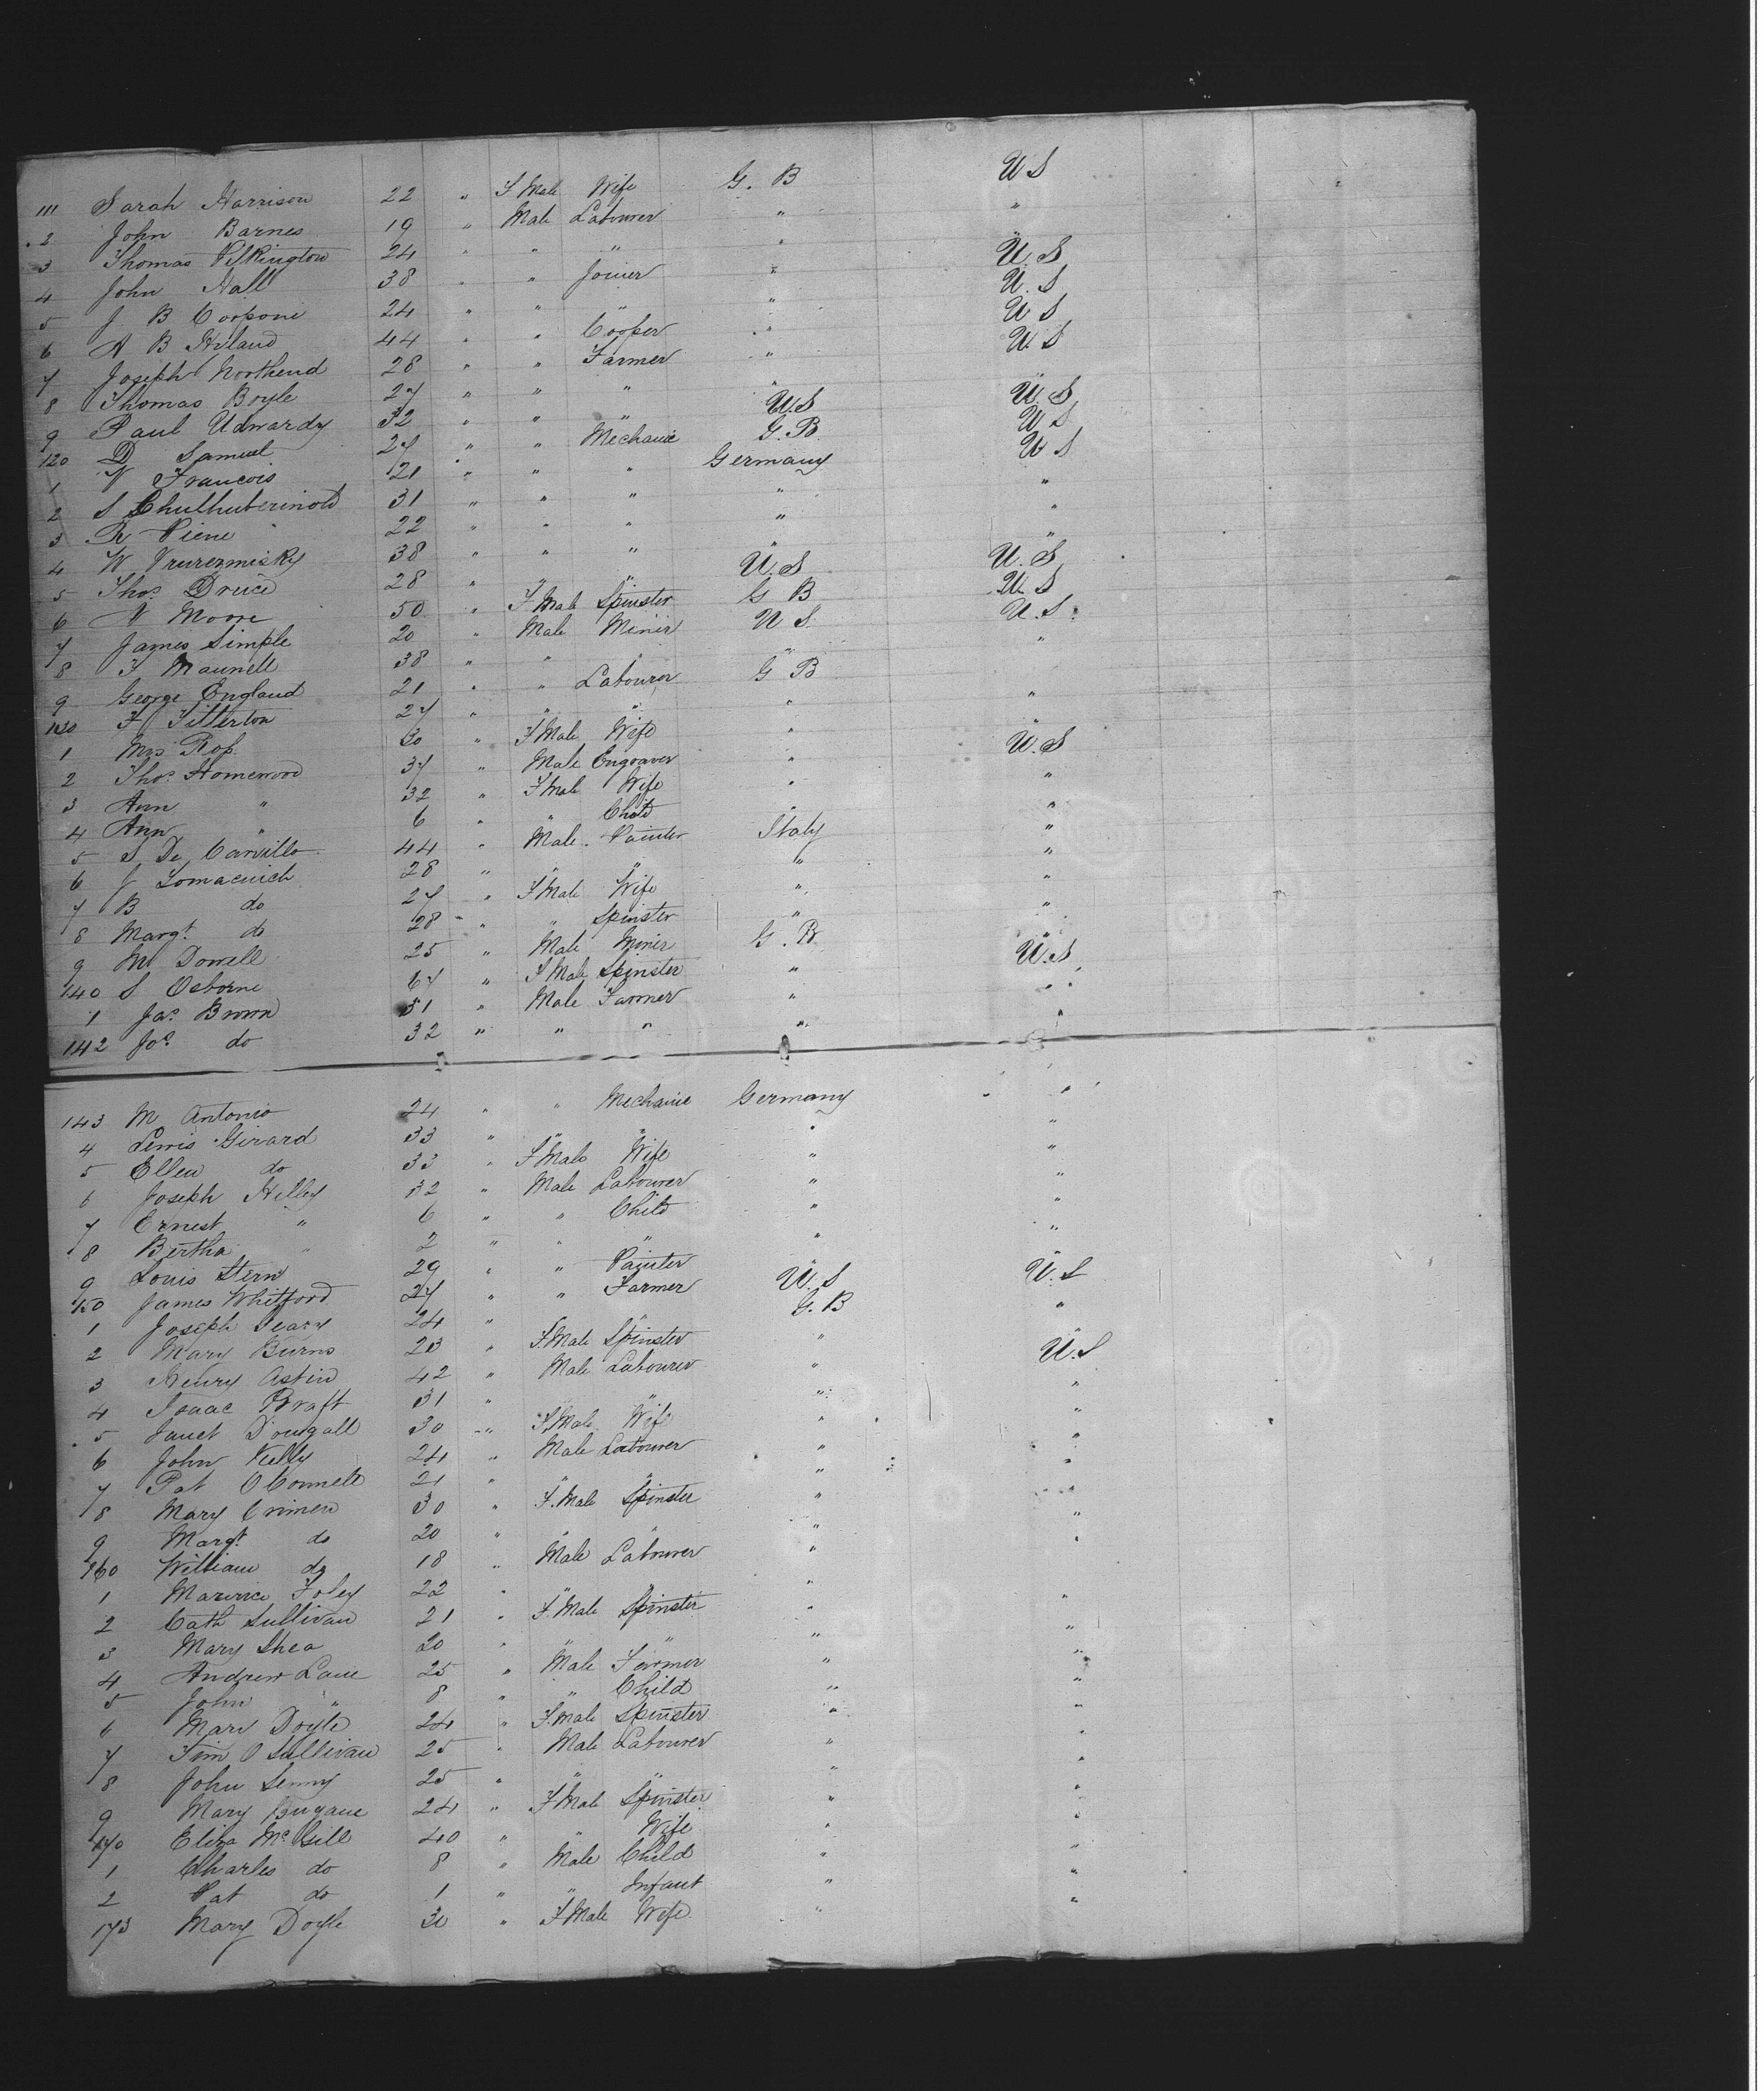 111 Sarah Harrison 22 " F Male Wife G. B U S
2 John Barnes 19 " Male Labourer " "
3 Thomas Pilkington 24 " " " " U. S
4 John Hall 38 " " Joiner " U. S
5 J B 24 " " " " U S
6 A B Hiland 44 " " Cooper " U. S
7 Joseph Northend 28 " " Farmer "
8 Thomas Boyle 27 " " " " U. S
9 Paul Udwardy 32 " " " U. S U S
120 D Samuel 27 " " Mechanic G. B U S
1 Francois 21 " " " Germany "
2 S 31 " " " " "
3 R Piene 22 " " " " "
4 W 38 " " " " U. S
5 Thos. Druce 28 " " " U. S U. S
6 Moore 50 " F Male Spinster G B U. S.
7 James Simple 20 " Male Miner U S "
8 Maunell 38 " " " "
9 George England 21 " " Labourer G B "
130 Titterton 27 " " " "
1 Mrs Rofs 30 " F Male Wife " U. S
2 Thos. Homewood 37 " Male Engraver " "
3 Ann " 32 " F Male Wife " "
4 Ann " 6 " " Child " "
5 S De Carvillo 44 " Male Painter Italy "
6 J Lomacuich 28 " " " " "
7 B do 27 " F Male Wife " "
8 Margt. do 28 " " Spinster " "
9 Mc Dowell 25 " Male Miner G. B U. S
140 S Osborne 67 " F Male Spinster " "
1 Jas. Brown 31 " Male Farmer " "
142 Jos. do 32 " " " "
143 M Antonio 24 " " Mechanic Germany "
4 Lewis Girard 33 " " " " "
5 Ellen do 33 " F Male Wife " "
6 Joseph Hilley 32 " Male Labourer " "
7 Ernest " 6 " " Child " "
8 Bertha " 2 " " " " "
9 Louis Stern 29 " " Painter " U. S
150 James Whitford 27 " " Farmer U. S "
1 Joseph 24 " " " G. B
2 Mary Burns 23 " F. Male Spinster " U. S
3 Henry Astin 42 " Male Labourer " "
4 Isaac 31 " " " " "
5 Janet Dougall 30 " F. Male Wife " "
6 John Kelly 24 " Male Labourer " "
7 Pat O Connell 21 " " " " "
8 Mary Crimen 30 " F. Male Spinster " "
9 Margt. do 20 " " " " "
160 William do 18 " Male Labourer "
1 Maurice Foley 22 " " " "
2 Cath Sullivan 21 " F. Male Spinster " "
3 Mary Shea 20 " " " " "
4 Andrew Lane 25 " Male Farmer " "
5 John " 8 " " Child " "
6 Mary Doyle 24 " F. Male Spinster " "
7 Tim O Sullivan 25 " Male Labourer " "
8 John 25 " " " " "
9 Mary 24 " F Male Spinster " "
170 Eliza Mc Gill 40 " " Wife " "
1 Charles do 8 " Male Child " "
2 Pat do 1 " " Infant " "
173 Mary Doyle 30 " F Male Wife "